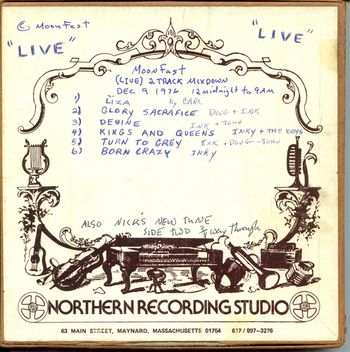 © MoonFast
"LIVE"
"LIVE"
MoonFast
(LIVE) 2 TRACK MIXDOWN
DEC 9 1976 12 midnight to 9AM
1) LIZA by CARL
2) GLORY SACRAFICE DOUG + INK
3) DEVINE INK + JOHN
4) KINGS AND QUEENS INKY + THE BOYS
5) TURN TO GREY INK + DOUG - JOHN
6) BORN CRAZY INKY
ALSO NICK'S NEW TUNE
SIDE TWO 3/4 way through
NORTHERN RECORDING STUDIO
63 MAIN STREET, MAYNARD, MASSACHUSETTS 01754 617 / 897-3276